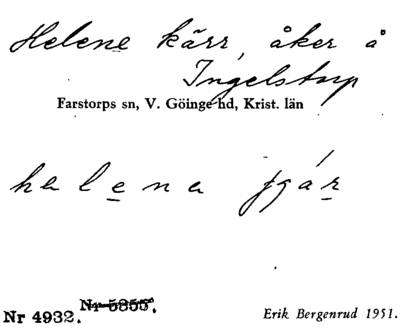 Helene kärr, åker å
Ingelstorp
Farstorps sn, V. Göinge hd, Krist. län
helena
Nr 4932. Nr 5855.
Erik Bergenrud 1951.